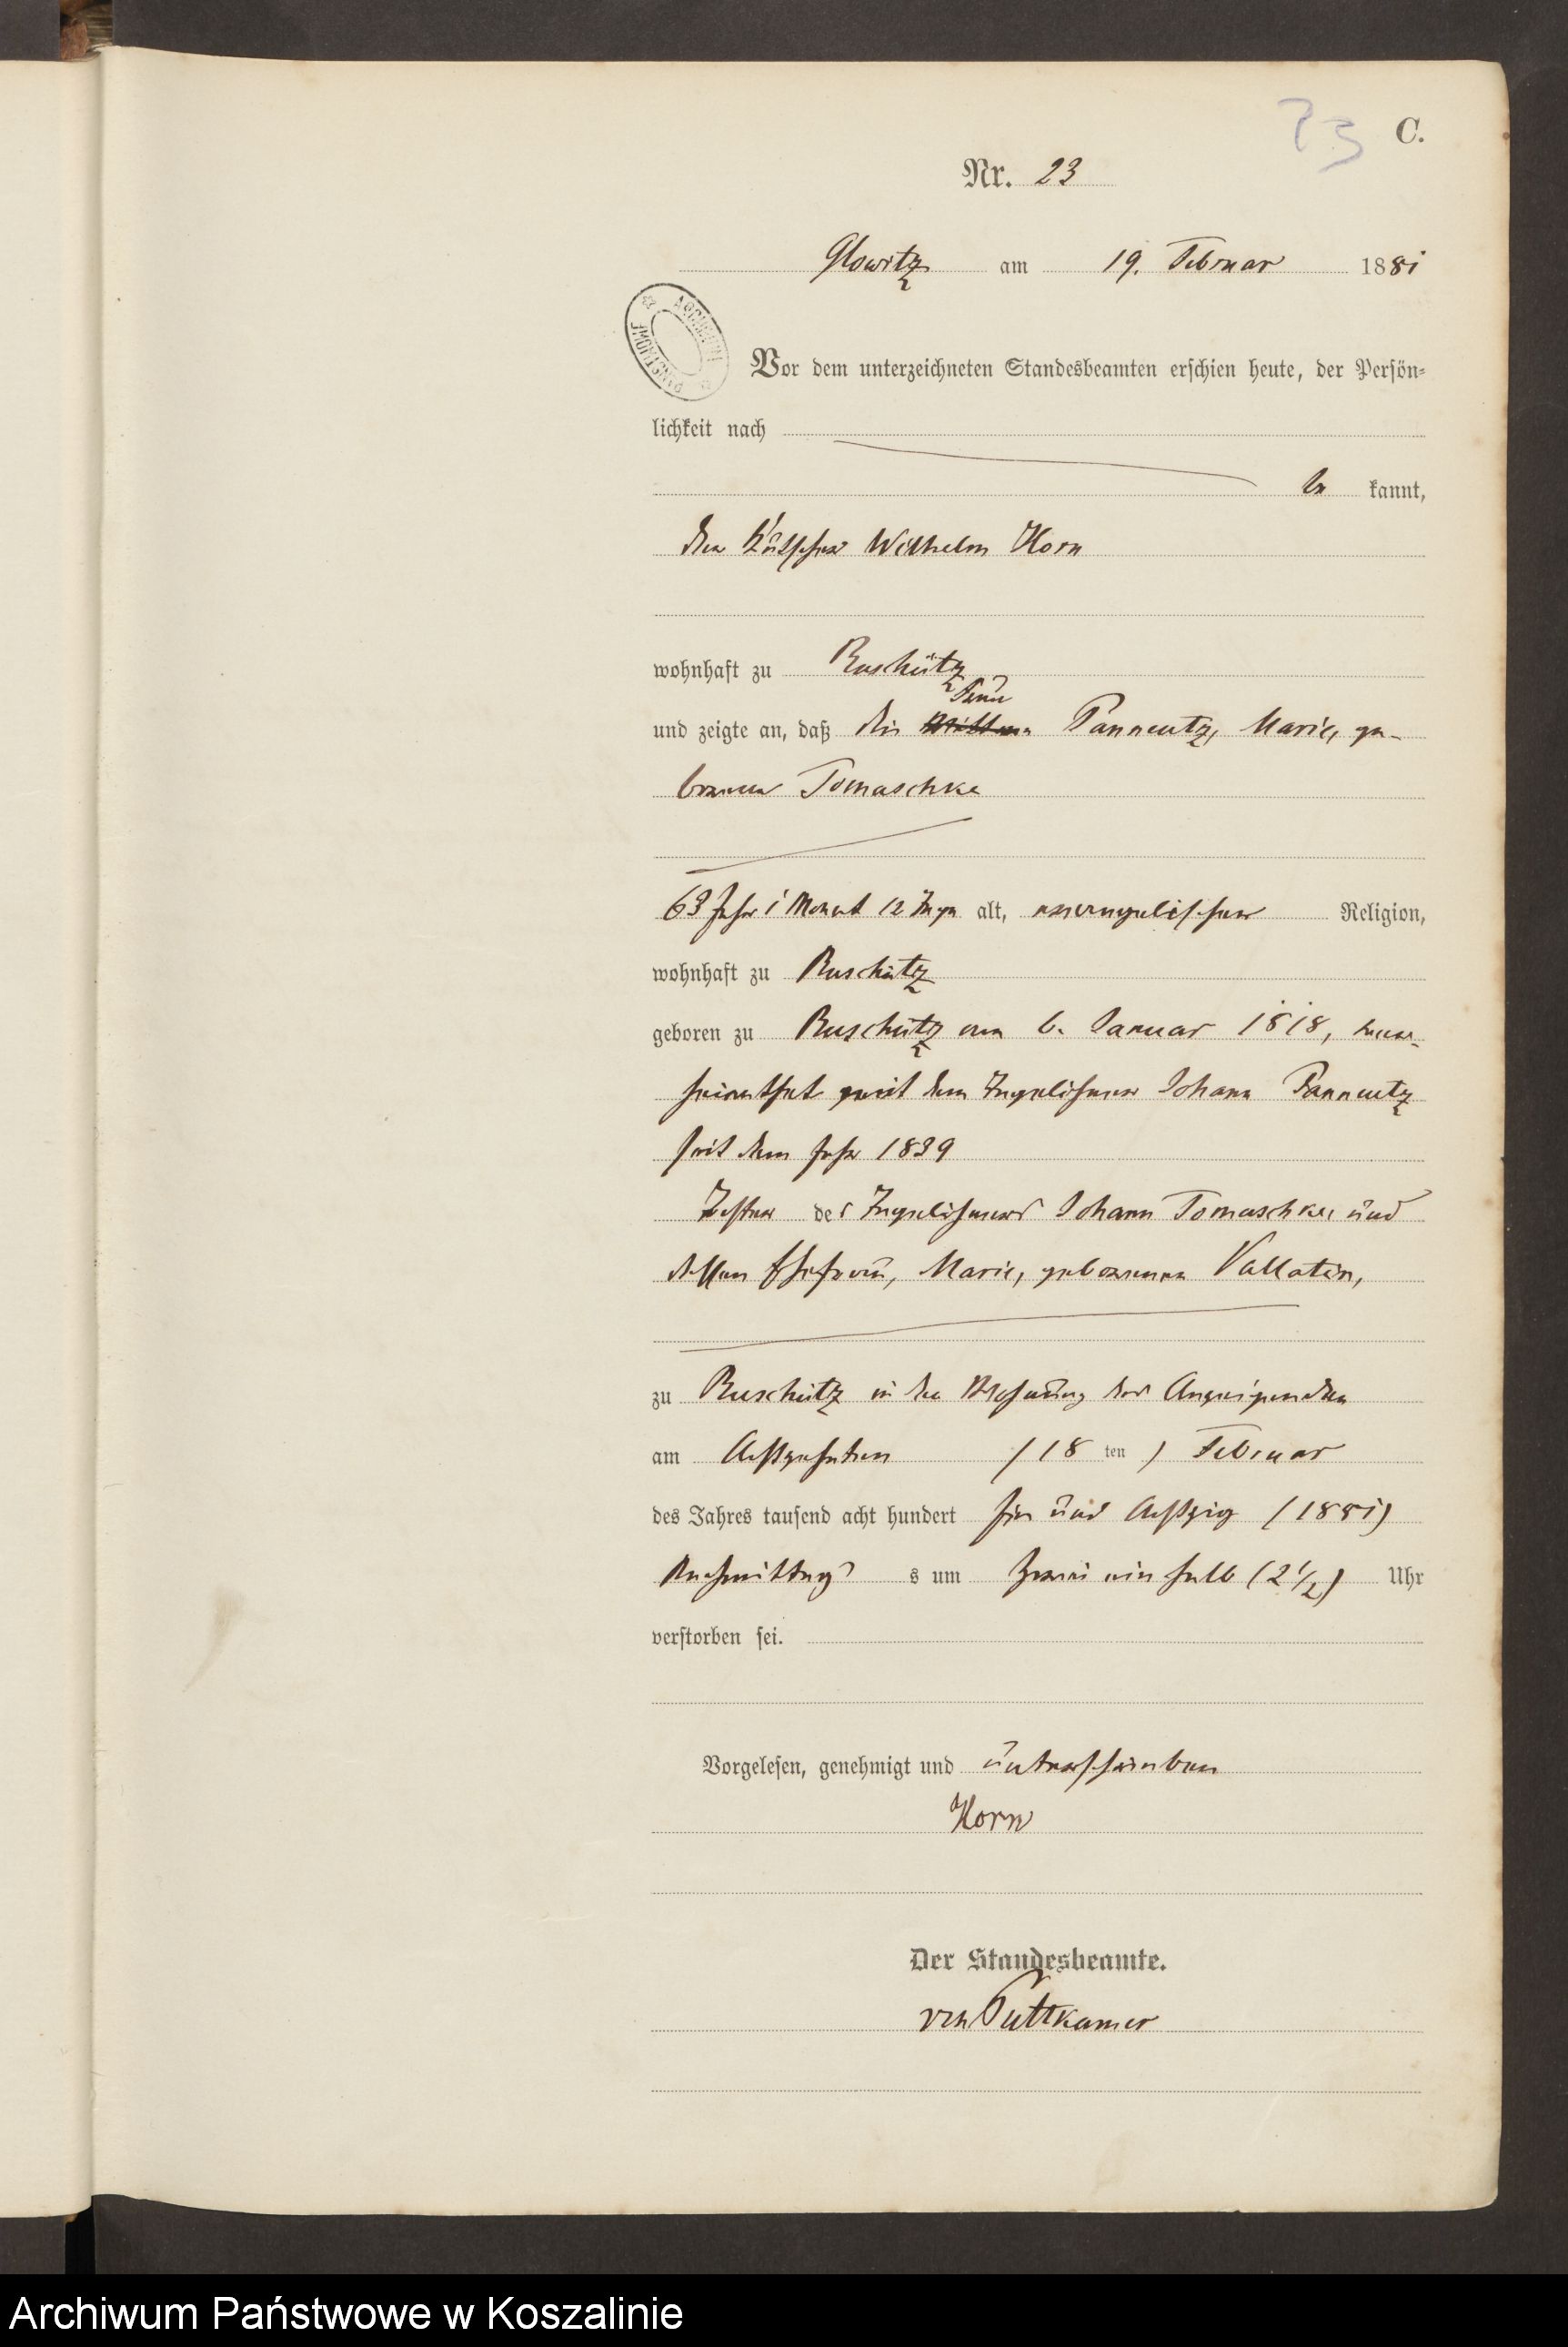 23
C.
Nr. 23
Glowitz am 19. Februar 1881
Vor dem unterzeichneten Standesbeamten erschien heute, der Persön-
lichkeit nach
be kannt,
der Kutscher Wilhelm Horn
wohnhaft zu Ruschütz
Frau
und zeigte an, daß die Pannewitz, Marie, ge-
borene Tomaschke
63 Jahr 1 Monat 12 Tage alt, evangelischer Religion,
wohnhaft zu Ruschütz
geboren zu Ruschütz am 6. Januar 1818, ver-
heirathet mit dem Tagelöhner Johann
seit dem Jahr 1839
Tochter des Tagelöhners Johann Tomaschke, und
dessen Ehefrau, Marie, geborenen Vallatin,
zu Ruschütz in der Wohnung des Anzeigenden
am Achtzehnten (18 ten) Februar
des Jahres tausend acht hundert ein und Achtzig (1881)
Nachmittag s um zwei ein halb (2 1/2) Uhr
verstorben sei.
Vorgelesen, genehmigt und unterschrieben
Horn
Der Standesbeamte.
von Puttkamer
Archiwum Państwowe w Koszalinie